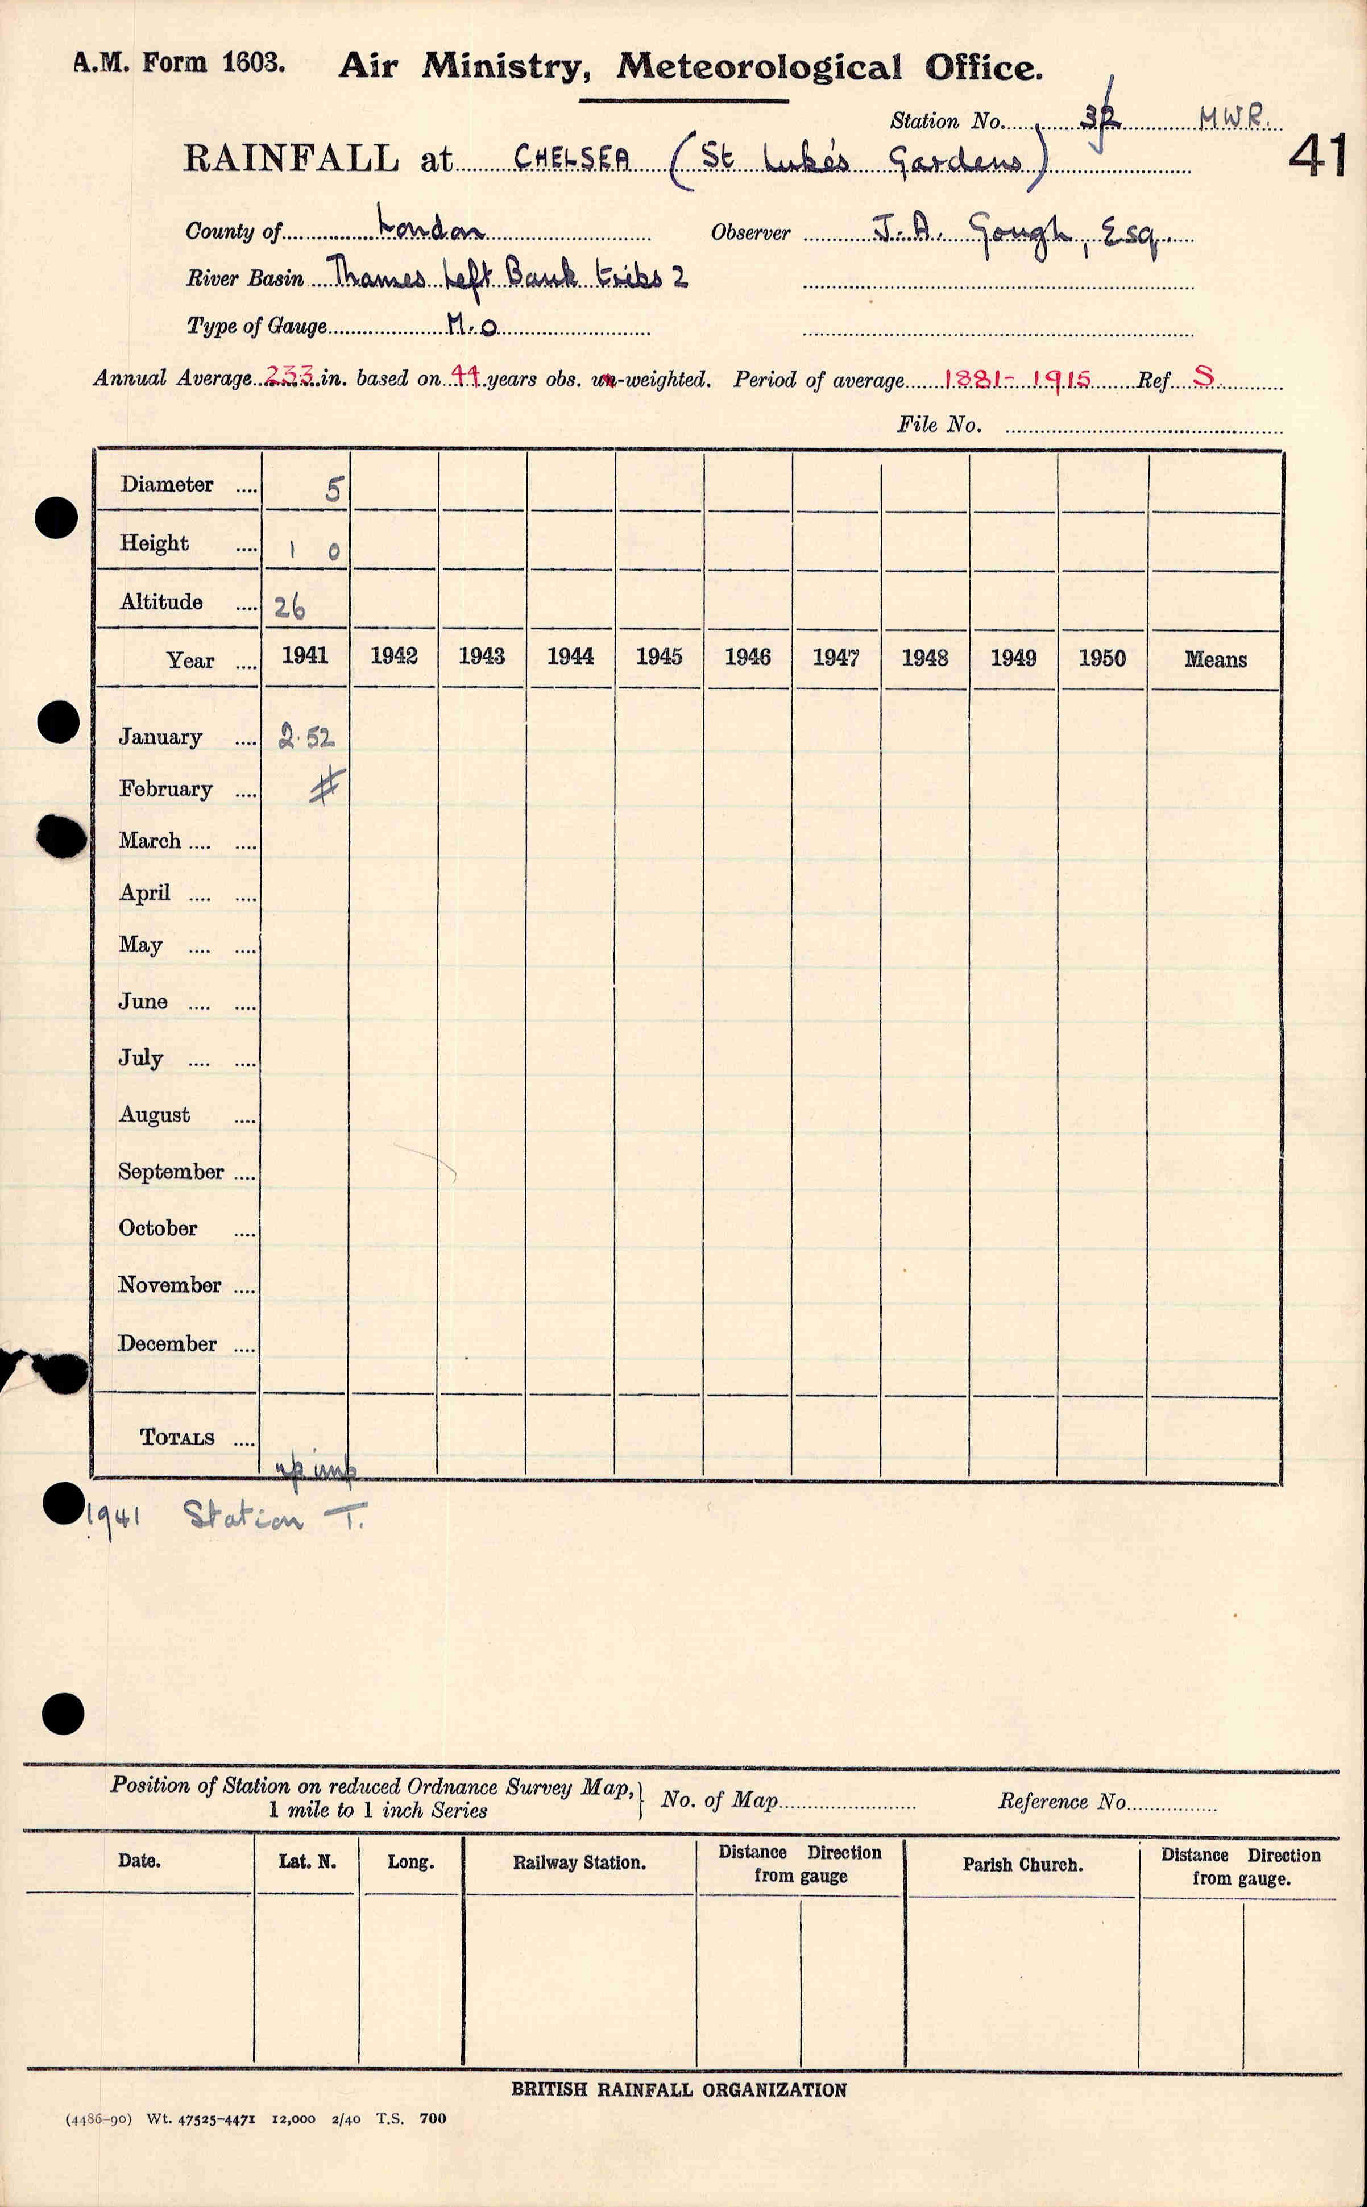 A.M. Form 1603. Air Ministry, Meteorological Office.
Station No. 32 MWR.
RAINFALL at CHELSEA (St Luke's Gardens) 41
County of London Observer J. A. Gough, Esq.
River Basin Thames Left Bank tribs 2
Type of Gauge M.O
Annual Average 233 in. based on 44 years obs. un-weighted. Period of average 1881-1915 Ref. S
File No.
Diameter .... 5
Height .... 1 0
Altitude .... 26
Year .... 1941 1942 1943 1944 1945 1946 1947 1948 1949 1950 Means
January .... 2.52
February .... #
March .... ....
April .... ....
May .... ....
June .... ....
July .... ....
August ....
September ....
October ....
November ....
December ....
TOTALS ....
1941 Station T.
Position of Station on reduced Ordnance Survey Map, } No. of Map Reference No.
1 mile to 1 inch Series
Date. Lat. N. Long. Railway Station. Distance Direction from gauge Parish Church. Distance Direction from gauge.
BRITISH RAINFALL ORGANIZATION
(4486-90) Wt. 47525-4471 12,000 2/40 T.S. 700